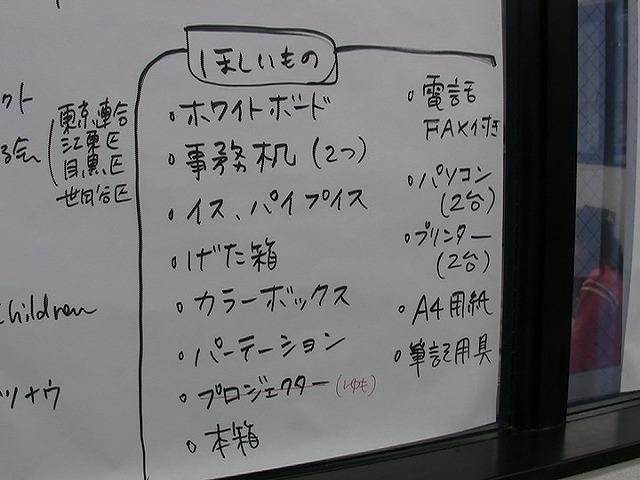 ほしいもの
クト
る会
東京連合
江東区
目黒区
世田谷区
Children
ツナウ
・ホワイトボード
・事務机 (2つ)
・イス、パイプイス
・げた箱
・カラーボックス
・パーテーション
・プロジェクター (いも)
・本箱
・電話
FAX付き
・パソコン
(2台)
・プリンター
(2台)
・A4用紙
・筆記用具